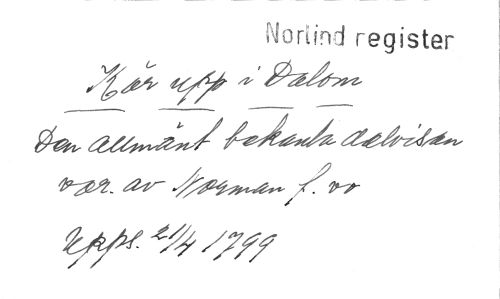 Norlind register
Kär upp i Dalom
Den allmänt bekanta dalvisan
var. av Norman f. vv
Upps. 21/4 1799